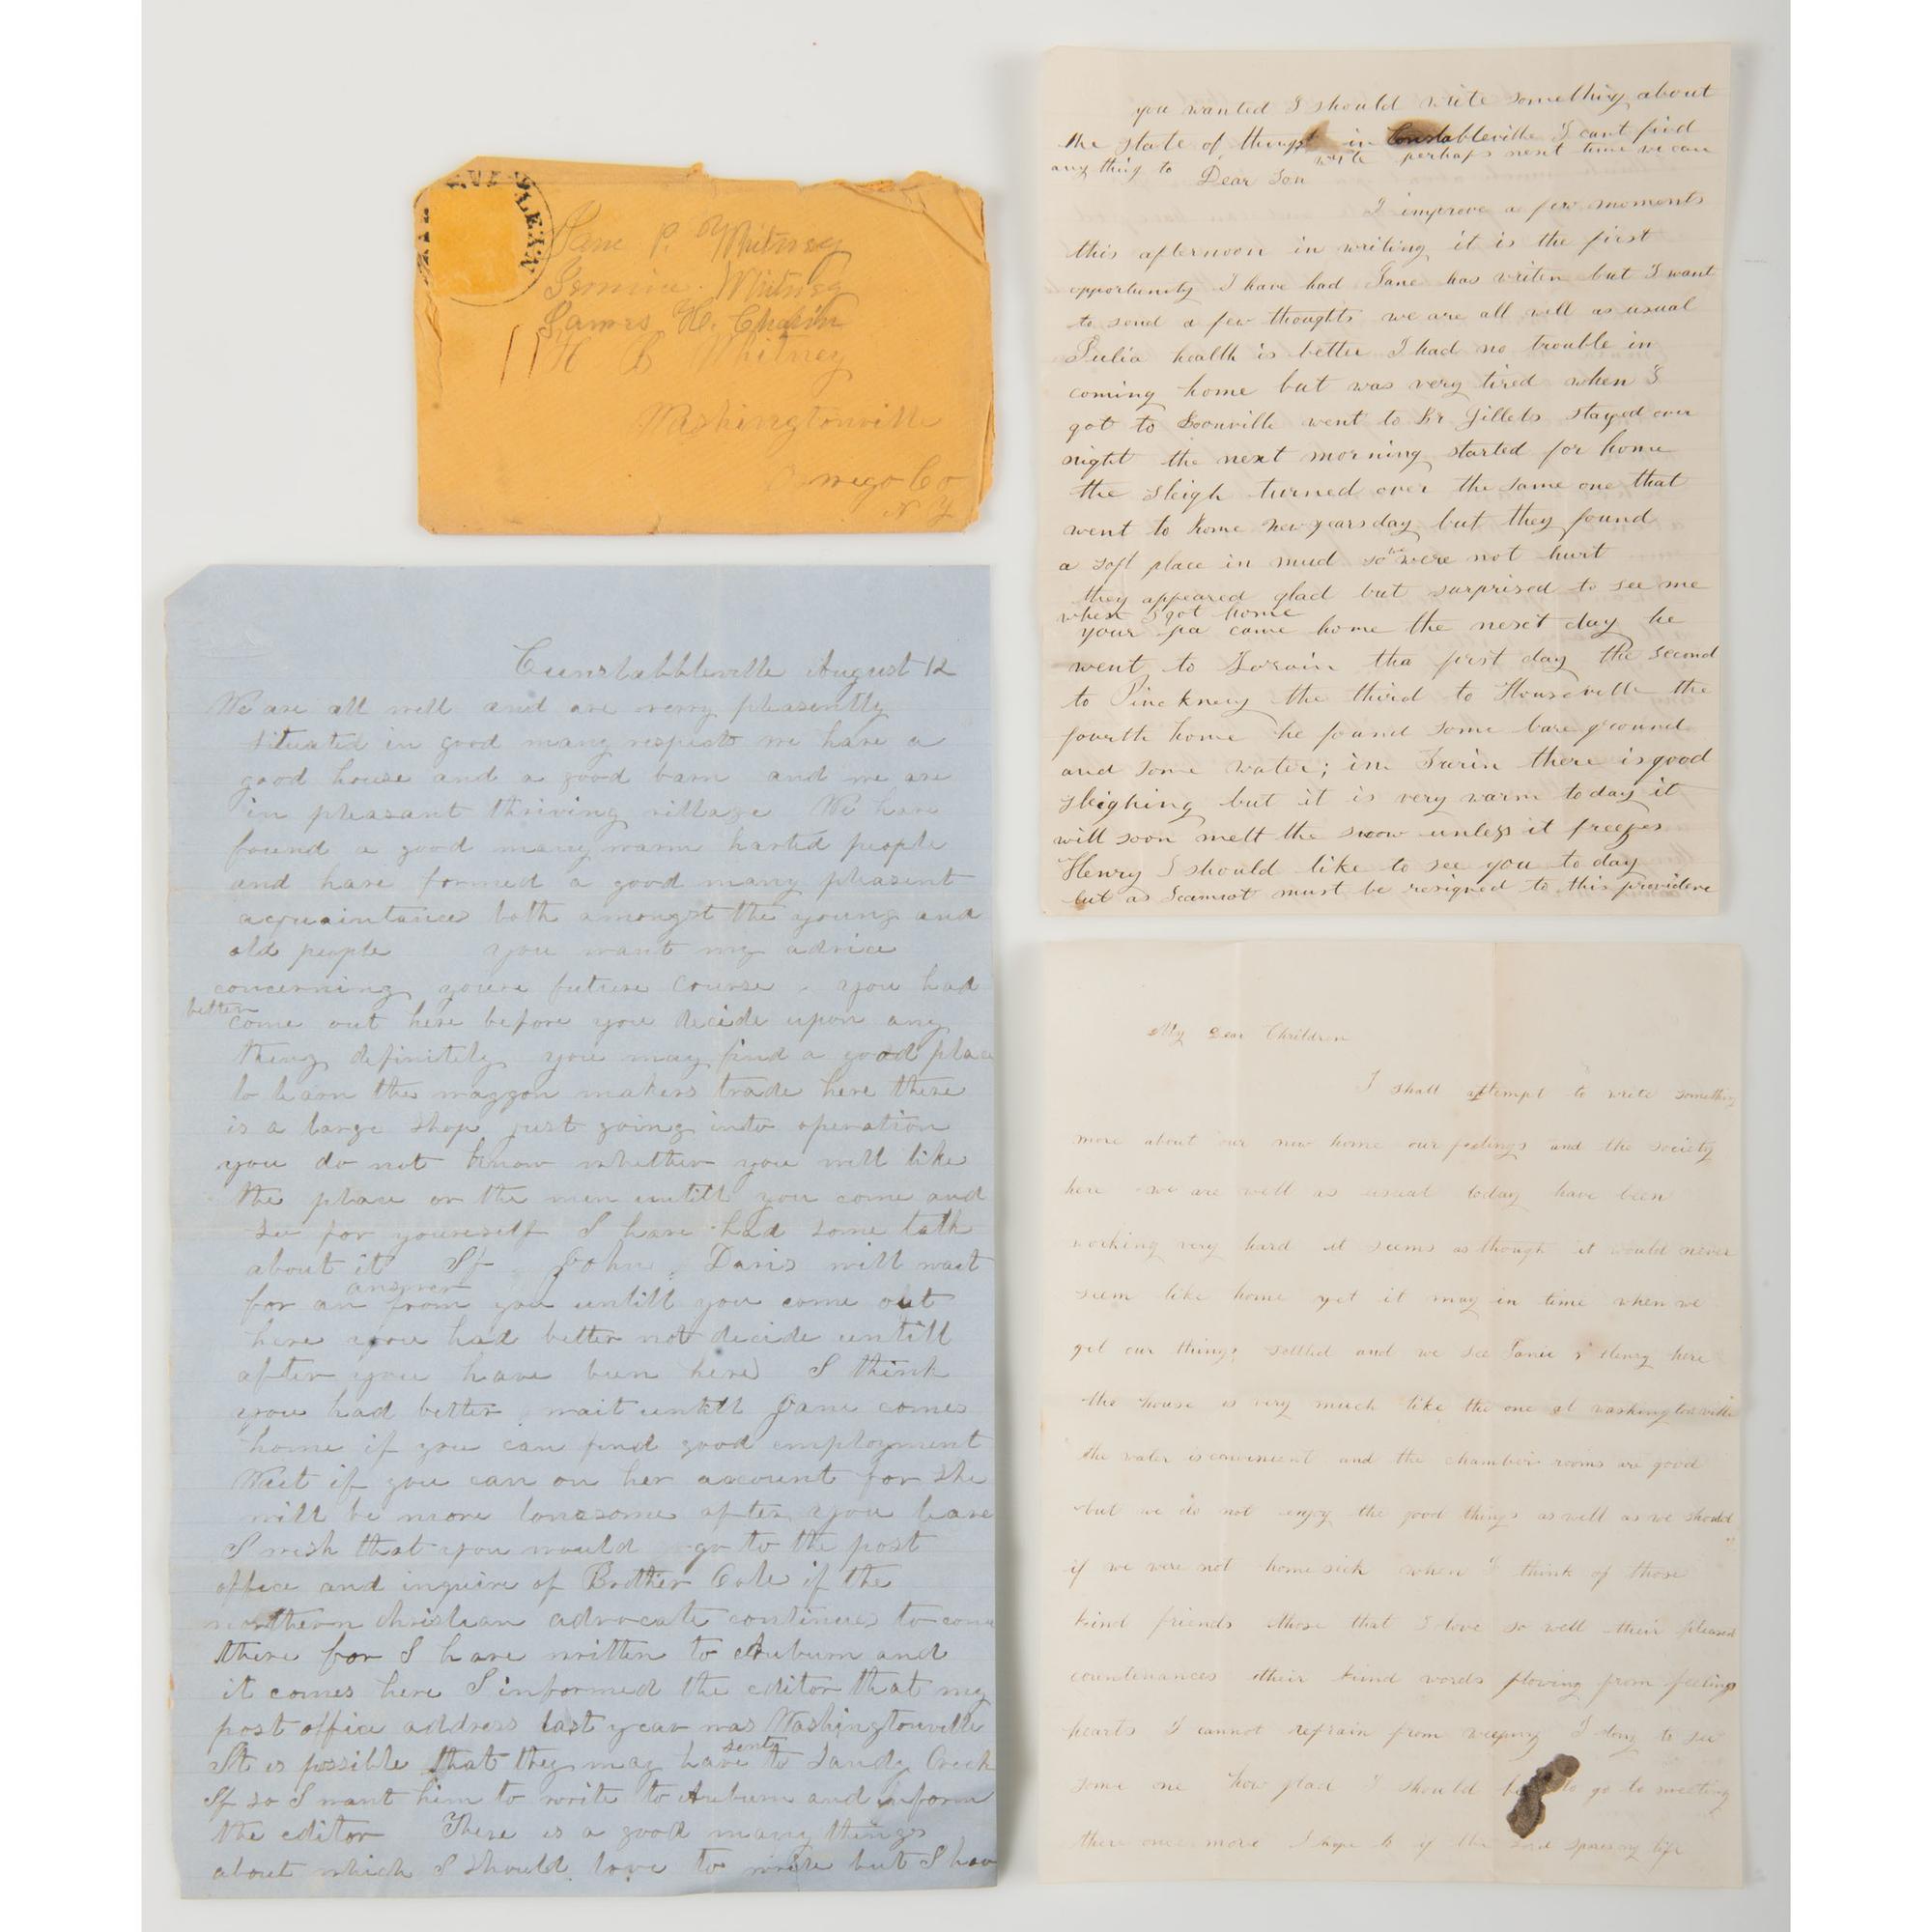 Jane P. Whitney
Whitney
James H. Chapin
H B Whitney
Washingtonville
Oswego Co
N Y
Cunstabbleville August 12
We are all well and are verry pleasently
situated in good many respects we have a
good house and a good barn and we are
in pleasant thriving village We have
found a good many warm harted people
and have formed a good many pleasent
acquaintances both amongst the young and
old people you want my advice
concerning youre future course . you had
better
come out here before you decide upon any
thing definitely you may find a good place
to learn the waggon makers trade here there
is a large shop just going into operation
you do not know whether you will like
the place or the men untill you come and
see for youreself I have had some talk
about it If John Davis will wait
answer
for an from you untill you come out
here you had better not decide untill
after you have been here I think
you had better wait untill Jane comes
home if you can find good employment
Wait if you can on her account for she
will be more lonesome after you leave
I wish that you would go to the post
office and inquire of Brother Cole if the
northern christian advocate continues to come
there for I have written to Auburn and
it comes here I informed the editor that my
post office address last year was Washingtonville
sent
It is possible that they may have to Sandy Creek
If so I want him to write to Auburn and inform
the editor There is a good many things
about which I should love to write but I hav
you wanted I should write something about
the state of things in Constableville I cant find
any thing to write perhaps next time we can
Dear Son
I improve a few moments
this afternoon in writing it is the first
opportunity I have had Jane has writen but I want
to send a few thoughts we are all well as usual
Julia health is better I had no trouble in
coming home but was very tired when I
got to Boonville went to Br Gillets stayed over
night the next morning started for home
the sleigh turned over the same one that
went to Rome newyearsday but they found
a soft place in mud so we were not hurt
they appeared glad but surprised to see me
when I got home
your pa came home the next day he
went to Lorain tha first day the second
to Pinckney the third to Houseville the
fourth home he found some bare ground
and some water; in Turin there is good
sleighing but it is very warm today it
will soon melt the snow unless it freezes
Henry I should like to see you to day
but as I cannot must be resigned to this providence
My Dear Children
I shall attempt to write something
more about our new home our feelings and the society
here we are well as usual today have been
working very hard it seems as though it would never
seem like home yet it may in time when we
get our things settled and we see Janie & Henry here
the house is very much like the one at washingtonville
the water is convenient and the chamber rooms are good
but we do not enjoy the good things as well as we should
if we were not home sick when I think of those
kind friends those that I love so well their pleasant
countenances their kind words flowing from feeling
hearts I cannot refrain from weeping I long to see
some one how glad I should be to go to meeting
there once more I hope to if the Lord spares my life